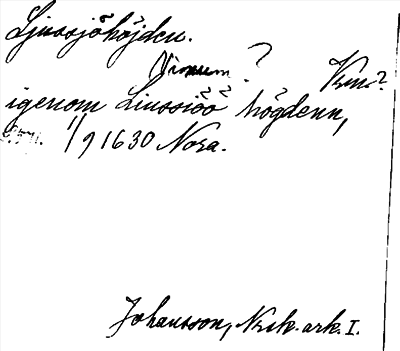 Ljussjöhöjden.
? Krm?
igenom Liussiöö högdenn,
1/9 1630 Nora.
Johansson, Nrik. ark. I.